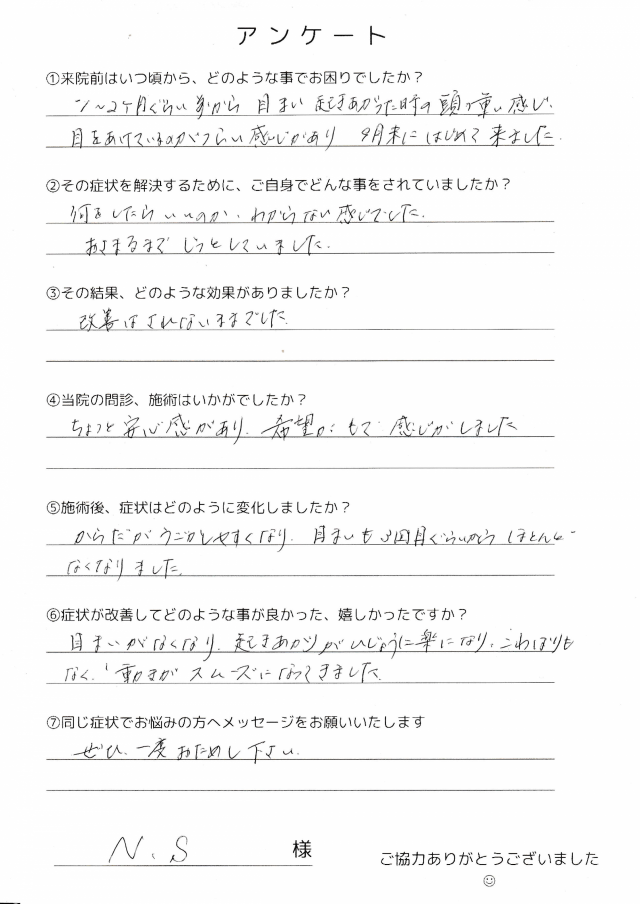 アンケート
①来院前はいつ頃から、どのような事でお困りでしたか？
1～2ヶ月ぐらい前から 目まい 起きあがった時の頭が重い感じ、
目をあけているのがつらい感じがあり 9月末にはじめて来ました。
②その症状を解決するために、ご自身でどんな事をされていましたか？
何をしたらいいのか、わからない感じでした。
おさまるまでじっとしていました。
③その結果、どのような効果がありましたか？
改善はされないままでした。
④当院の問診、施術はいかがでしたか？
ちょっと安心感があり、希望がもてる感じがしました
⑤施術後、症状はどのように変化しましたか？
からだがうごかしやすくなり、目まいも3回目ぐらいからほとんど
なくなりました。
⑥症状が改善してどのような事が良かった、嬉しかったですか？
目まいがなくなり、起きあがりがひじょうに楽になり、こわばりも
なく、動きがスムーズになってきました。
⑦同じ症状でお悩みの方へメッセージをお願いいたします
ぜひ、一度おためし下さい。
N.S 様
ご協力ありがとうございました
☺